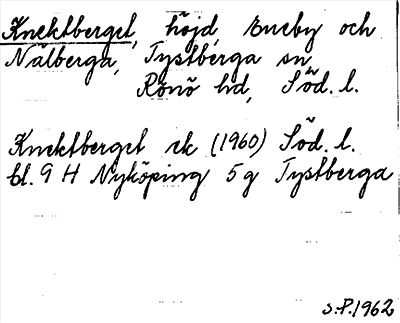 Knektberget, höjd, Bueby och
Nälberga, Tystberga sn,
Rönö hd, Söd. l.
Knektberget ek (1960) Söd. l.
bl. 9 H Nyköping 5g Tystberga
S.P. 1962